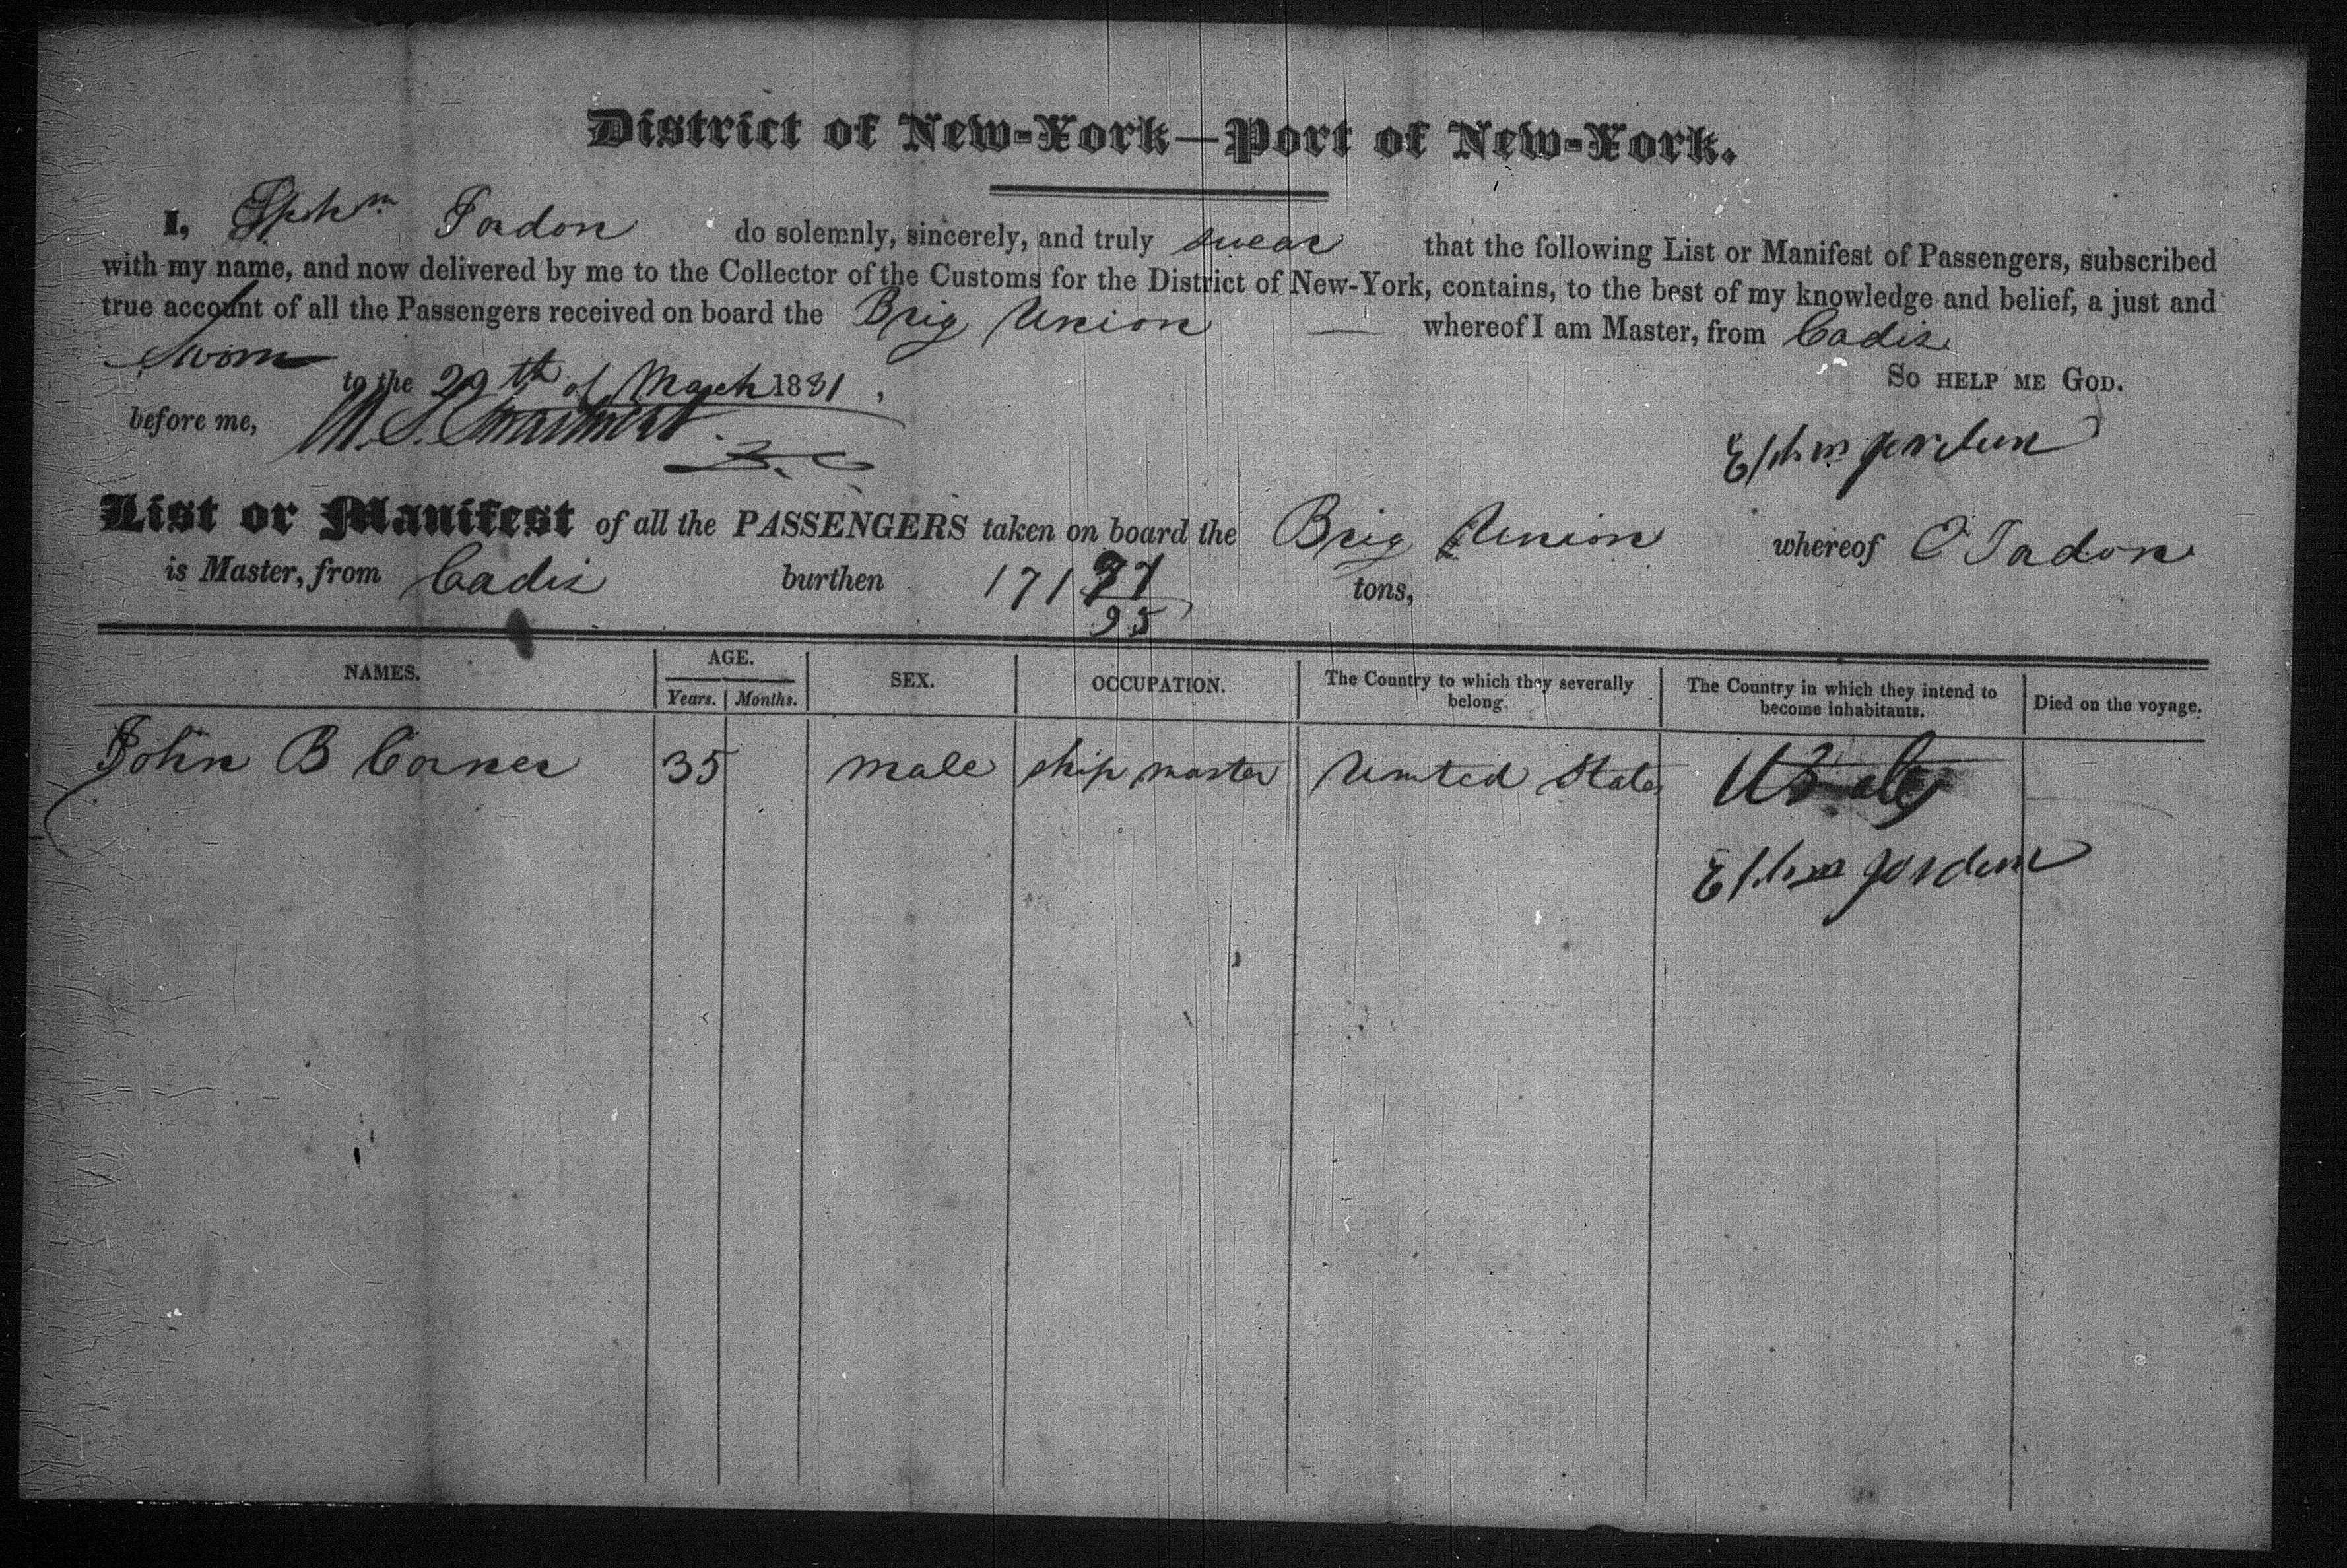 District of New-York—Port of New-York.
I, Ephm Jordon do solemnly, sincerely, and truly swear that the following List or Manifest of Passengers, subscribed
with my name, and now delivered by me to the Collector of the Customs for the District of New-York, contains, to the best of my knowledge and belief, a just and
true account of all the Passengers received on board the Brig Union — whereof I am Master, from Cadiz
So HELP ME GOD.
Sworn to the 29th of March 1831.
before me,
Ephm Jordan
List or Manifest of all the PASSENGERS taken on board the Brig Union whereof E Jordon
is Master, from Cadiz burthen 171 tons,
95
NAMES. AGE. SEX. OCCUPATION. The Country to which they severally belong. The Country in which they intend to become inhabitants. Died on the voyage.
Years. Months.
John B Corner 35 male ship master United States U States
Ephm Jordan